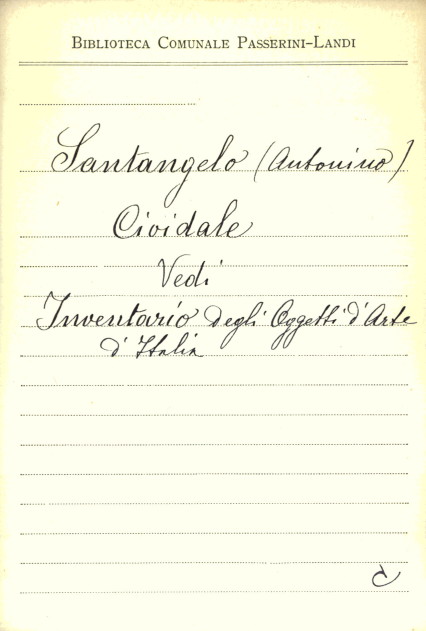 BIBLIOTECA COMUNALE PASSERINI-LANDI
Santangelo (Antonino)
Cividale
Vedi
Inventario degli Oggetti d'Arte
d'Italia